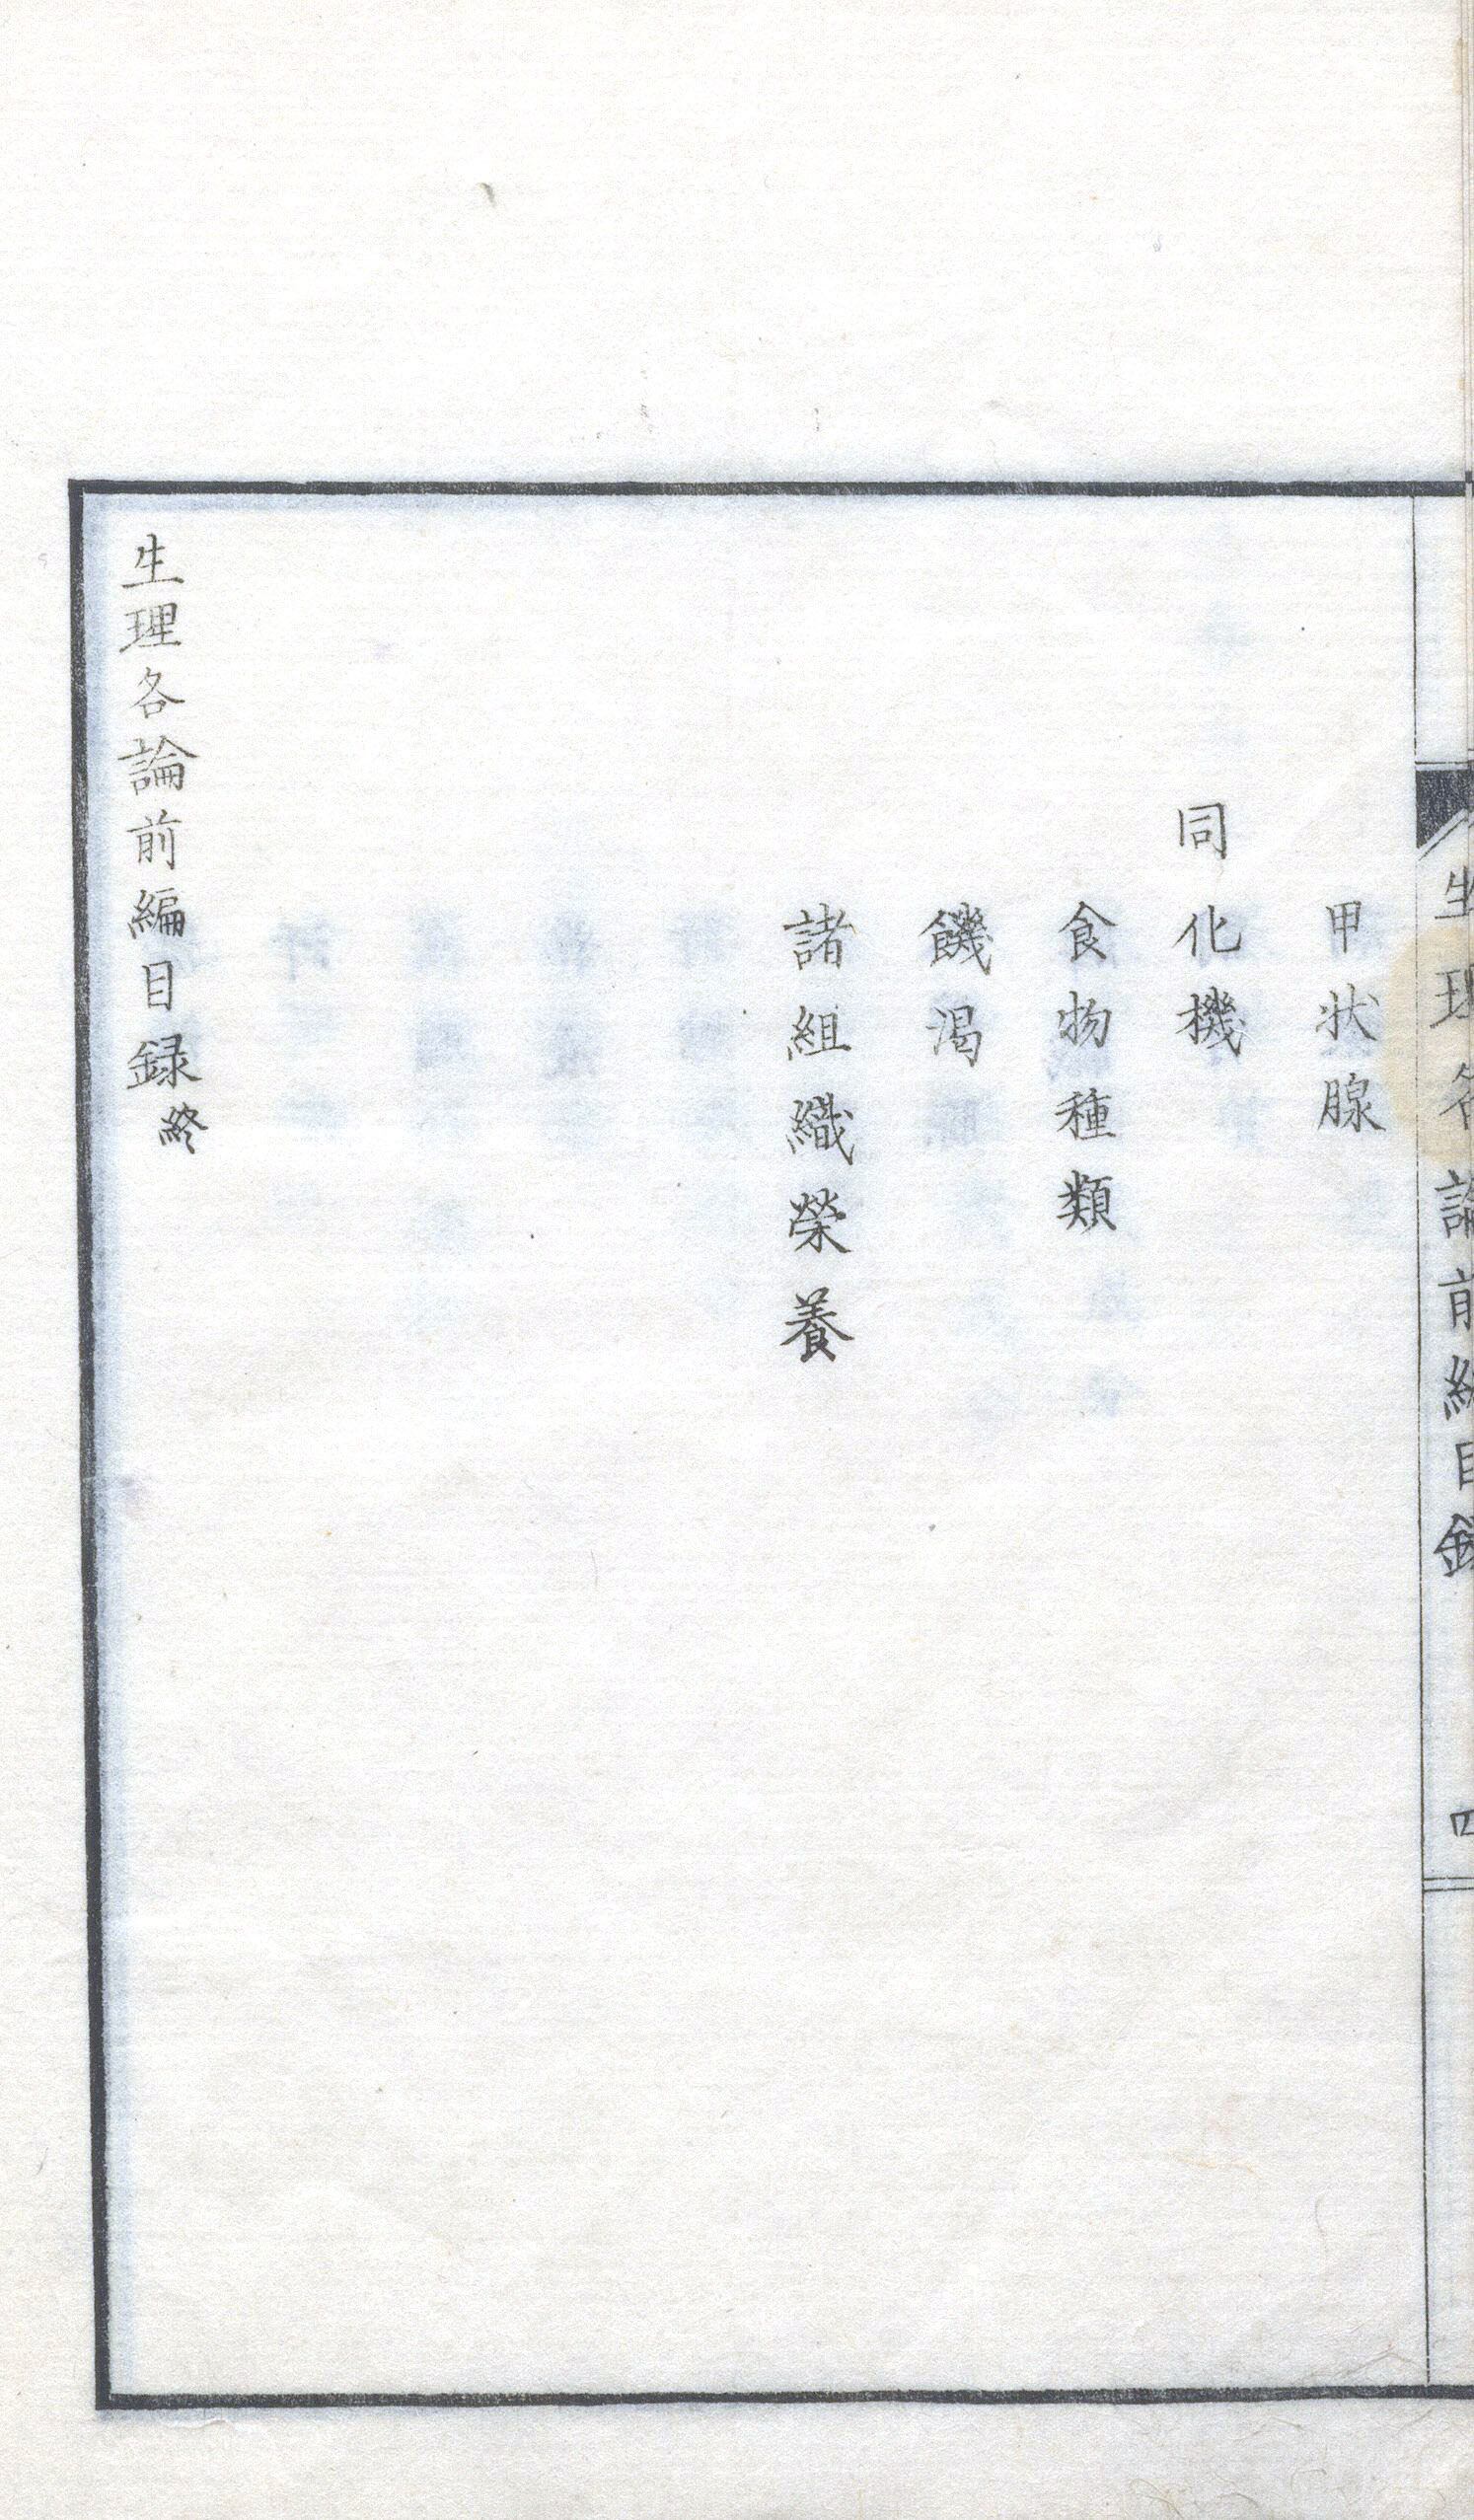 生理各論前編目録
四
甲状腺
同化機
食物種類
饑渇
諸組織榮養
生理各論前編目録終